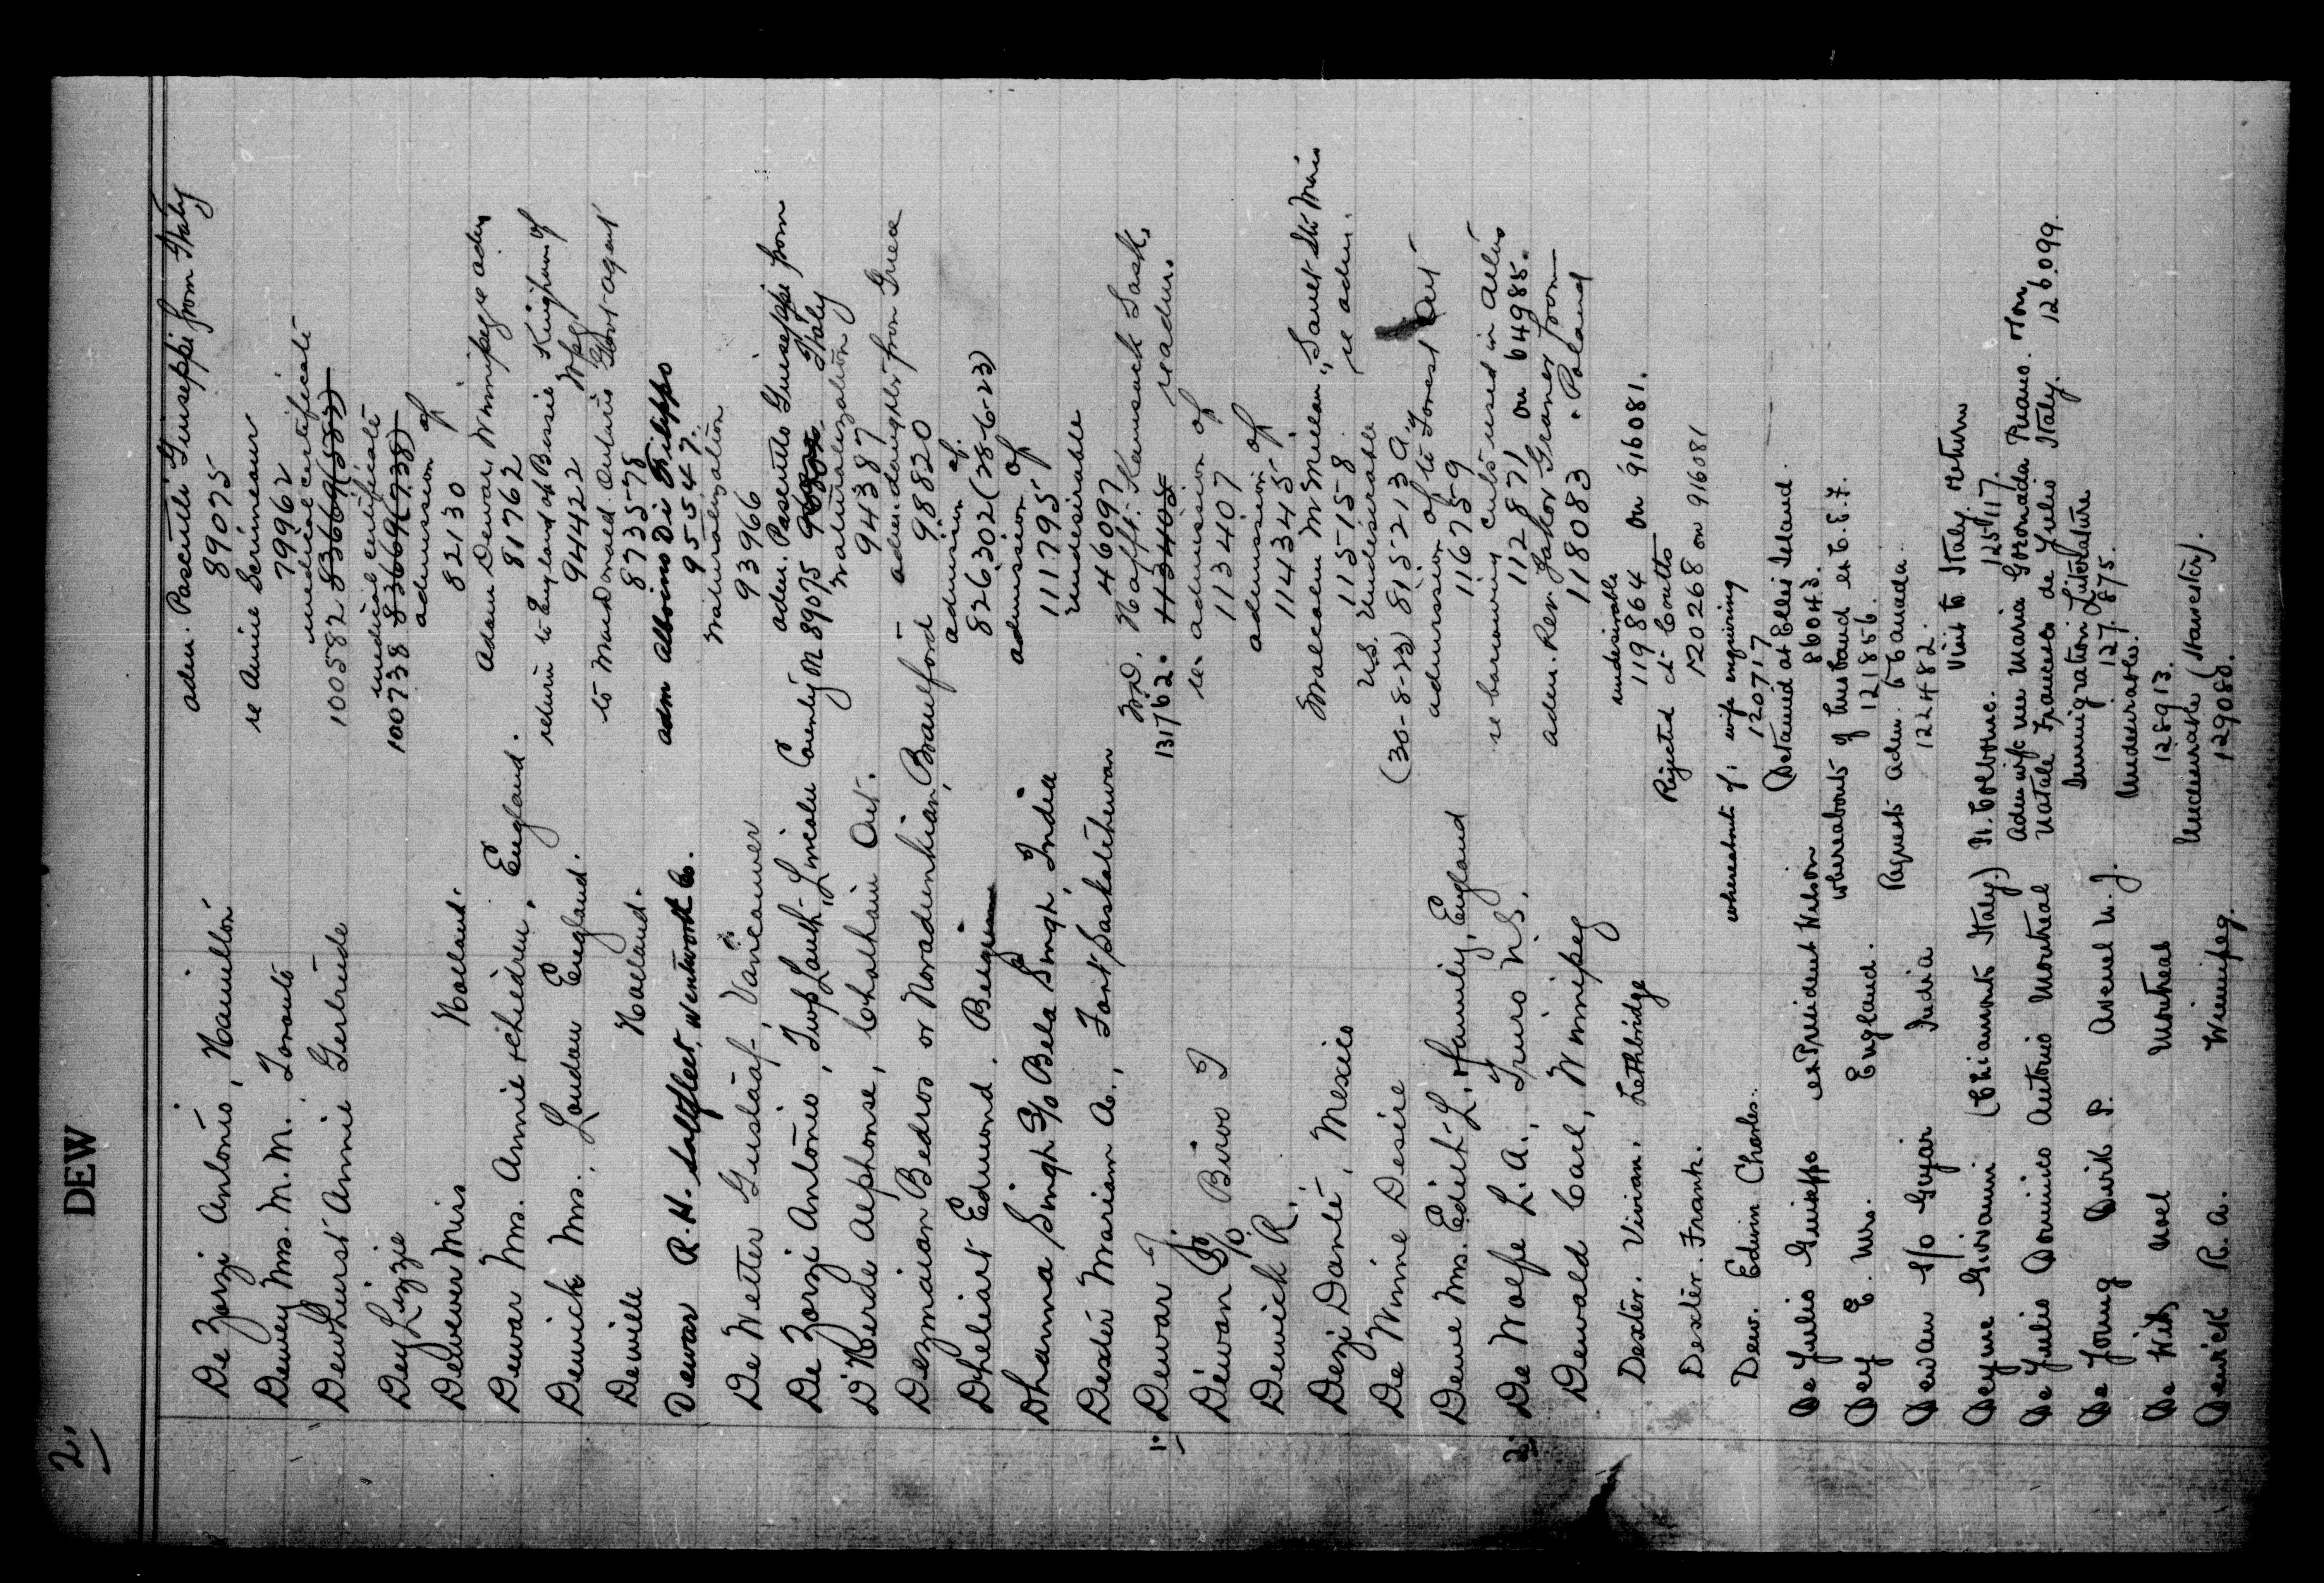 2.
DEW
De Zorzi Antonio, Hamilton adm. Pasculli Giuseppi from Italy
89075
Dewey Mrs. M. M. Toronto re Aimie Scrimeaur
79962
Dewhurst Annie Gertrude medical certificate
100582 83669(582)
Dey Lizzie medical certificate
100738 83669(738)
Dewever Miss Holland. admission of
82130
Dewar Mrs. Annie & children, England. Adam Dewar, Winnipeg adm
81762
Dewick Mrs. London England. return to England of Bessie Kingham of Wpg.
94422
Dewille Holland. to MacDonald Ontario Govt agent
873578
Dewar R. H. Saltfleet, Wentworth Co. adm Albino Di Filippo
95547
De Wetter Gustaaf, Vancouver Naturalization
93966
De Zorzi Antonio, Twp Louth, Lincoln County adm. Pascutto Giuseppi from Italy
M 89075
D'Herde Alphonse, Chatham Ont. Naturalization
94387
Dezmaian Bedros or Noradunkian, Brantford adm. daughter from Greece
98820
Dheliart Edmond, Belgium admission of.
826302 (28-6-23)
Dhanna Singh S/o Bela Singh, India admission of
111795
Dexter Mariam A., Fort Saskatchewan undesirable
46097
1. Dewar J. W.D. Hafft. Kamsack Sask.
131762. 113405 readm.
Dewan S/o Biroo I re admission of
113407
Dewick R. admission of
114345
Dezi Dante, Mexico Malcolm McMillan, Sault Ste Marie
115158 re adm.
De Winne Desire U.S. Undesirable
(30-8-23) 815213 a.
Dewe Mrs. Edith L. & family, England admission of to Forest Ont
116759
2. De Wolfe L. A., Truro N.S. re harrowing cuts used in Arles
112871 on 64985.
Dewald Carl, Winnipeg adm. Rev. Jakob Graner from Poland
118083
Dexter. Vivian. Lethbridge undesirable
119864 on 916081.
Dexter. Frank. Rejected at Coutts
120268 on 916081
Dew. Edwin Charles. whereabouts of: wife enquiring
120717
De Julio Guiseppe ex President Wilson Detained at Ellis Island.
86043.
Dey E. Mrs. England. whereabouts of husband ex C.E.F.
121856.
Dewan S/o Gujar India Request adm. to Canada.
122482.
Deyme Giovanni (Chiamonti Italy) Pt. Colborne. Visit to Italy. Return
125117.
De Julio Dominico Antonio Montreal Adm wife nee Maria Goronada Ruano. from
Natale Francesco de Julio Italy. 126099
De Jong Dirk P. Avenel N.J. Immigration Literature
127875.
De Wit Noel Montreal Undesirable.
128913.
Dewick R. A. Winnipeg. Undesirable (Harvester).
129080.